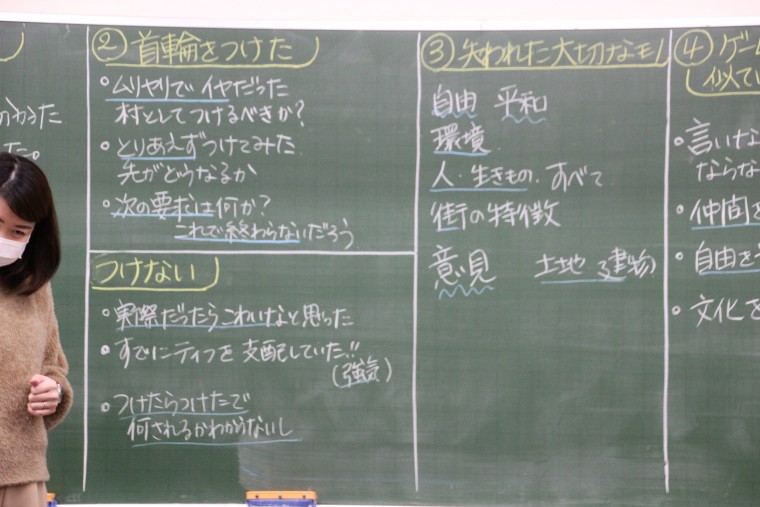 のわった
た。
② 首輪をつけた
・ムリヤリでイヤだった
村としてつけるべきか?
・とりあえずつけてみた
先がどうなるか
・次の要求は何か?
これで終わらないだろう
つけない
・実際だったらこわいなと思った
・すでにニティフを支配していた!!
(強気)
・つけたらつけたで
何されるかわからないし
③ 失われた大切なモノ
自由 平和
環境
人・生きもの・すべて
街の特徴
意見 土地 建物
④ ゲー
似てい
・言いな
ならな
・仲間を
・自由を
・文化を